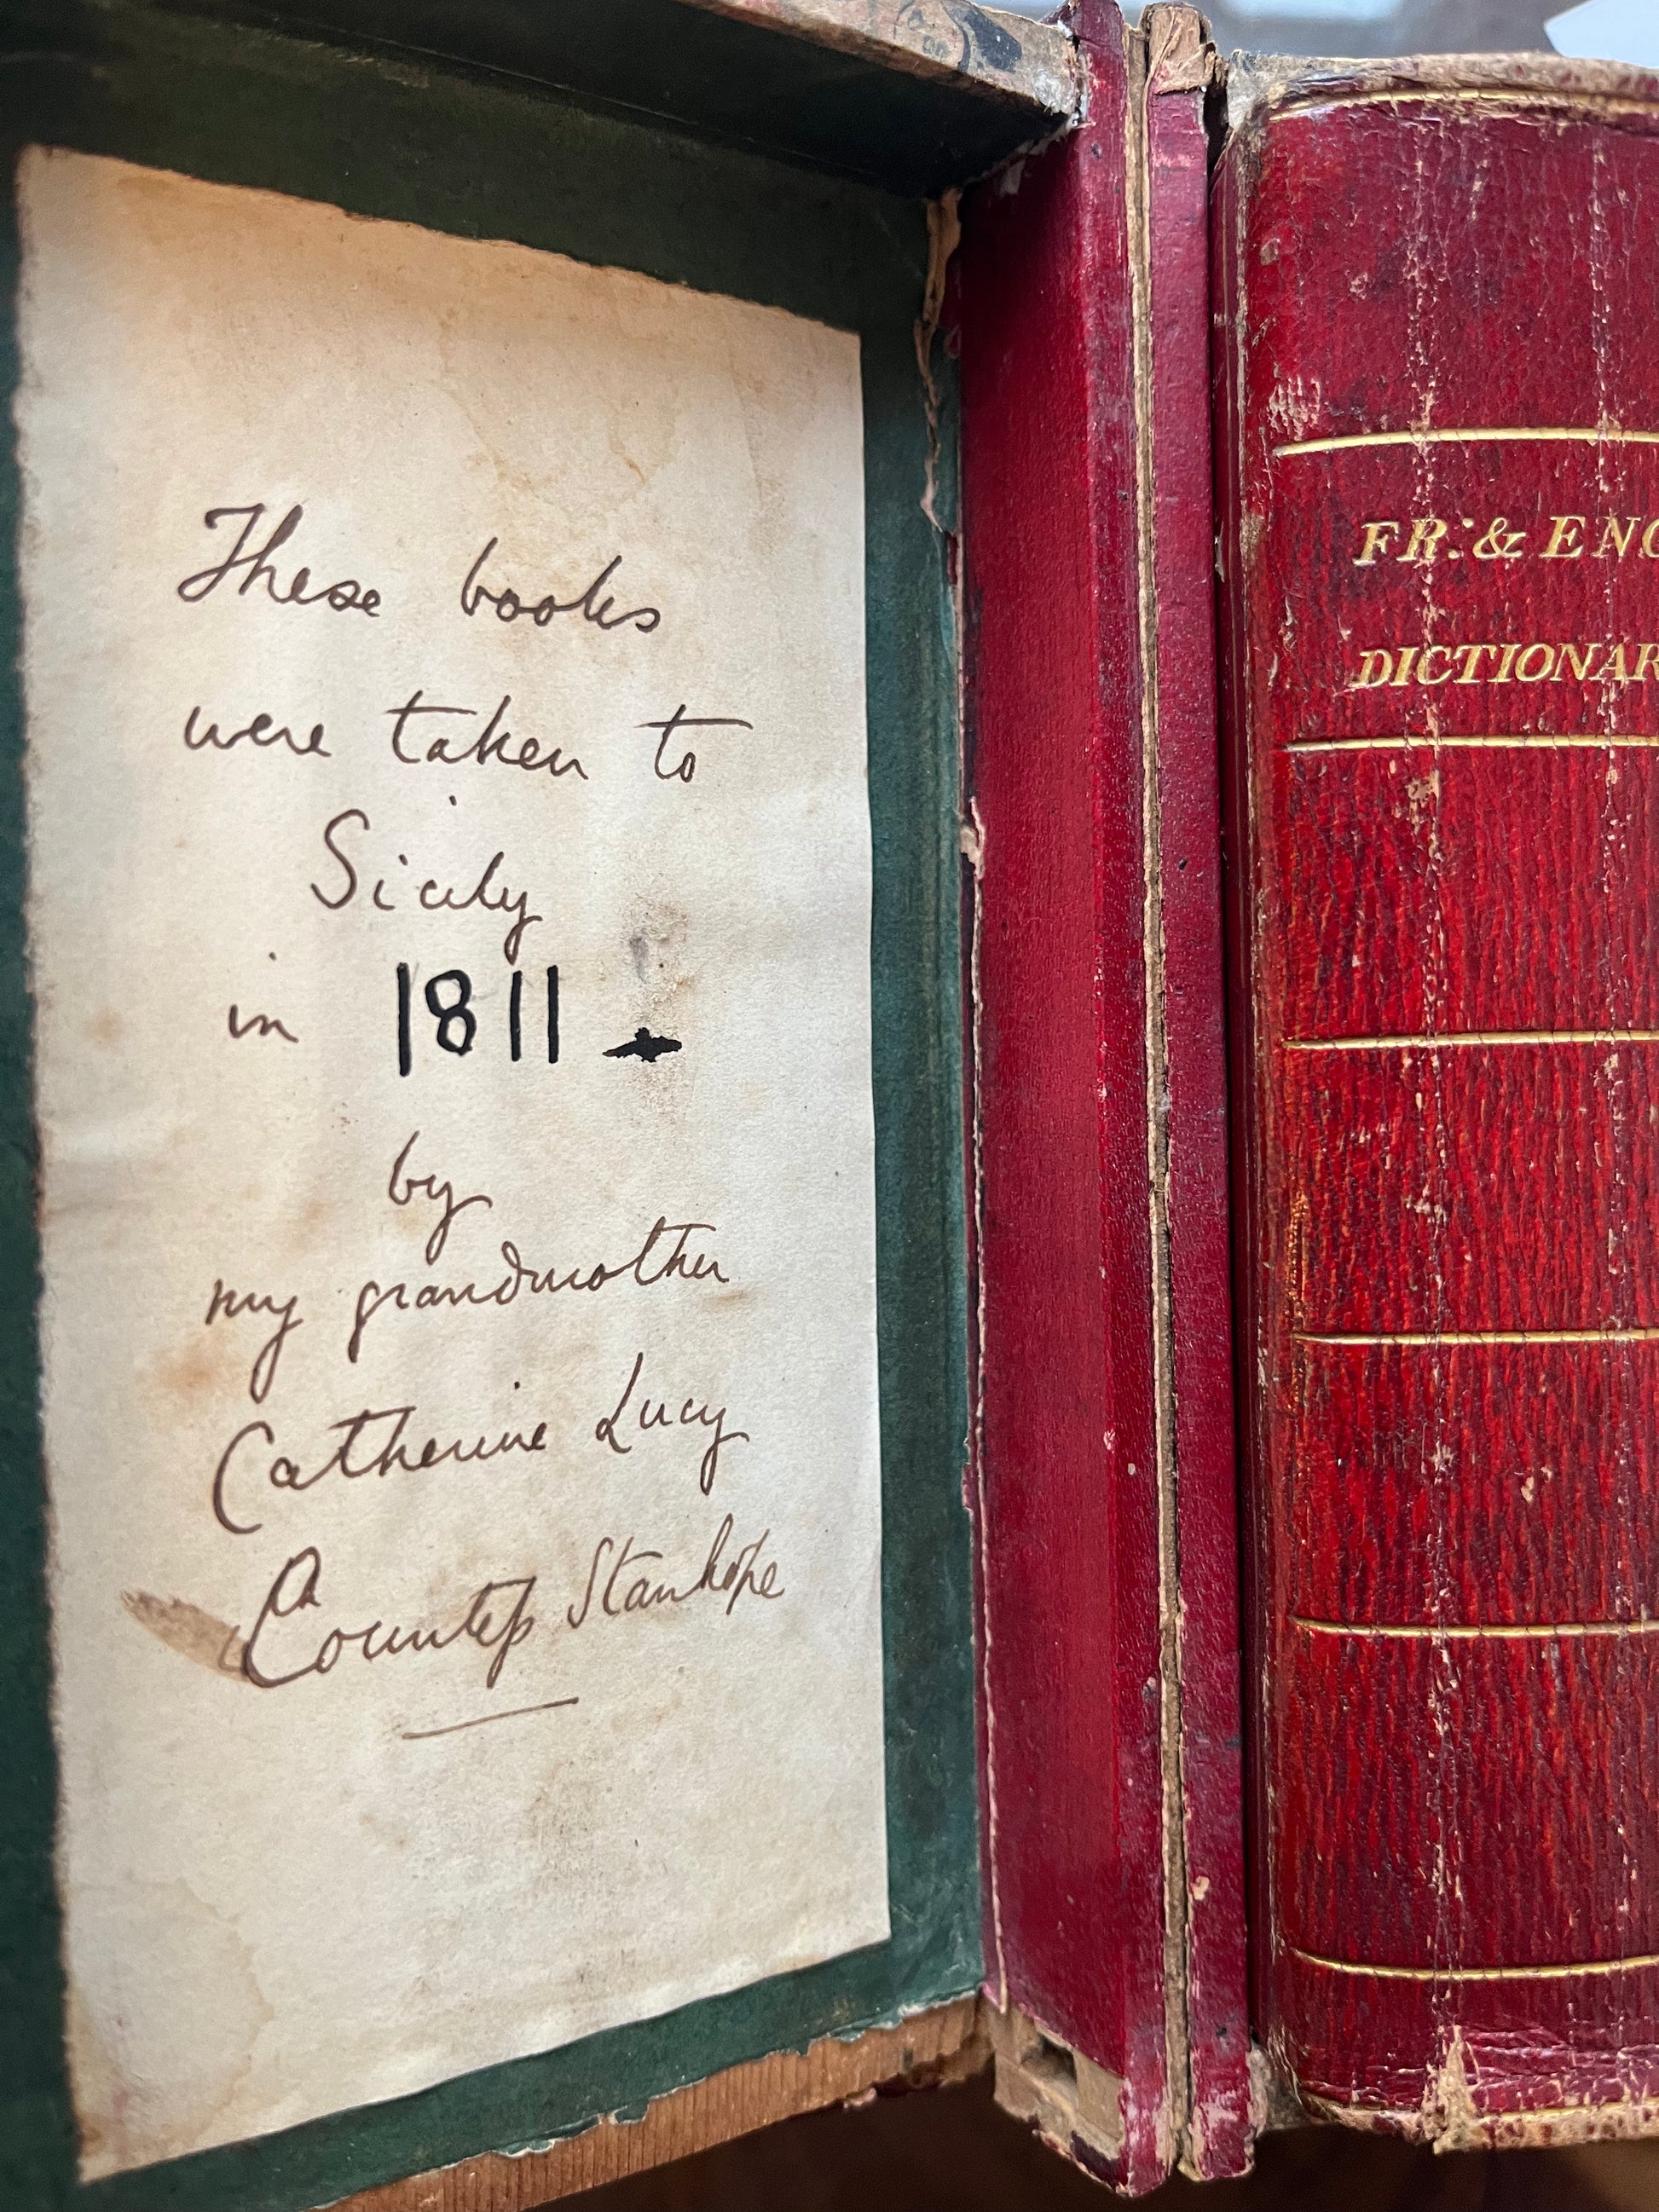 These books
were taken to
Sicily
in 1811.
by
my grandmother
Catherine Lucy
Countess Stanhope
FR: & ENG
DICTIONAR